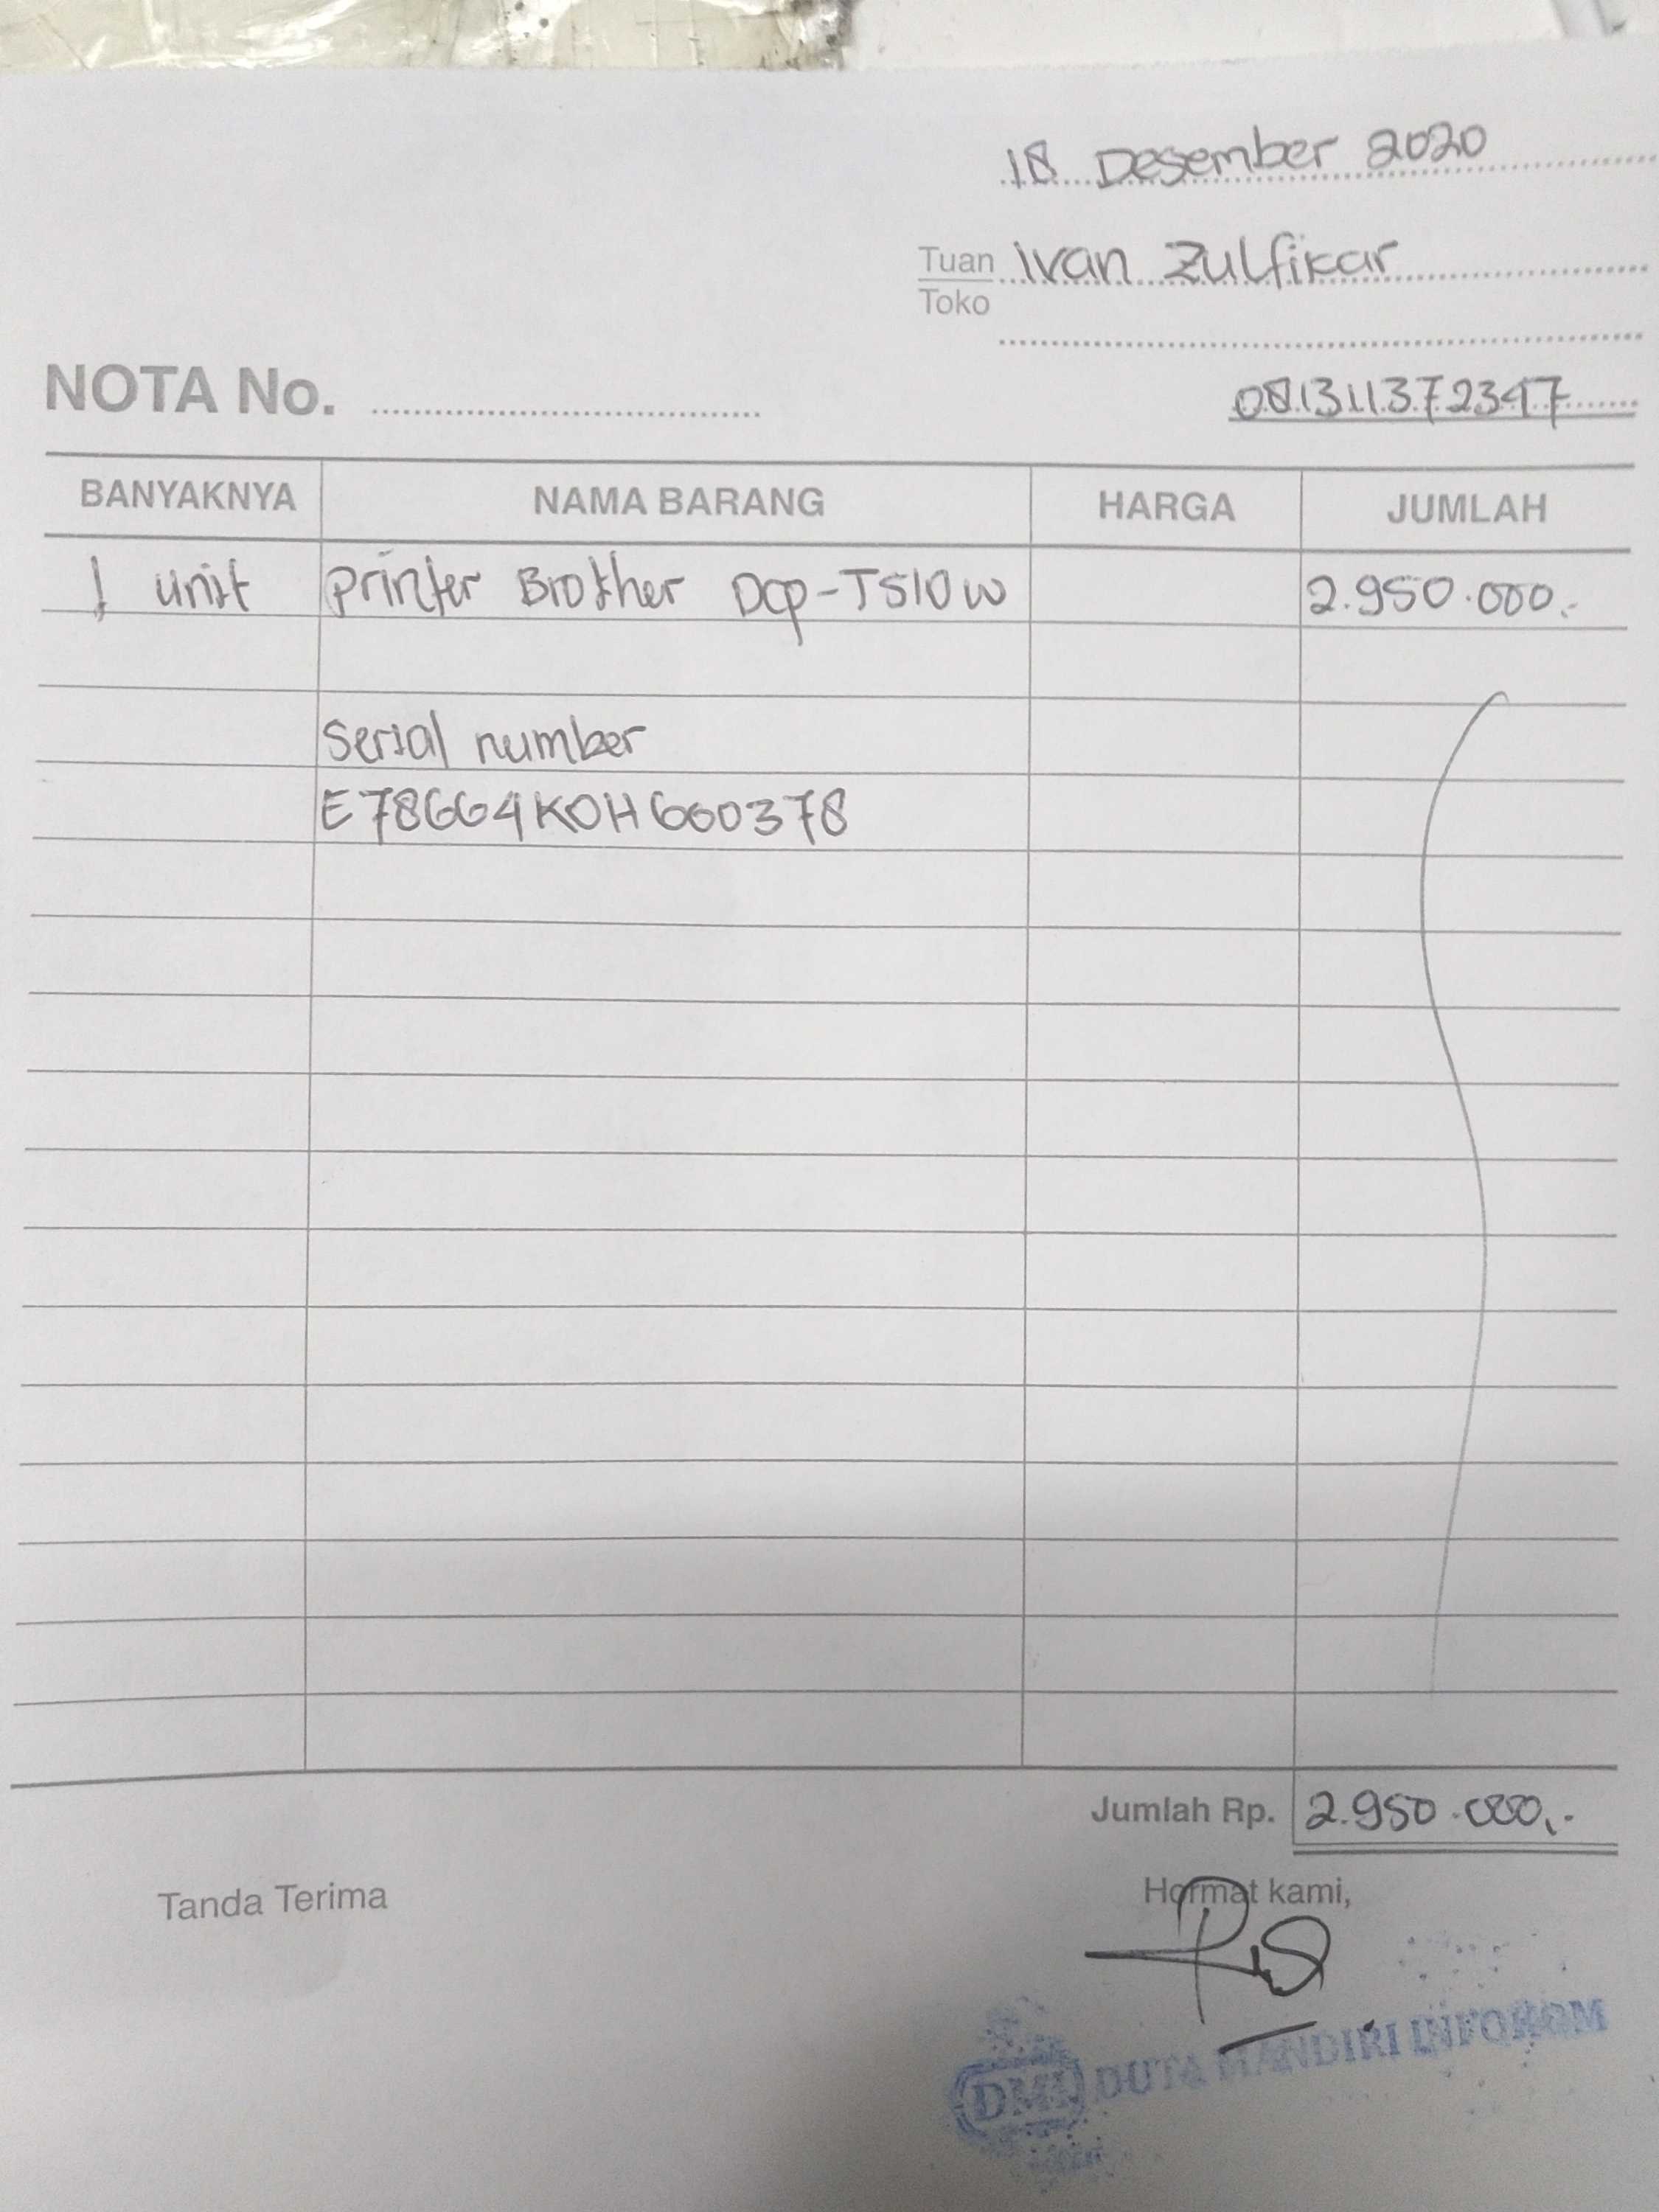 18 Desember 2020
Tuan Ivan Zulfikar
Toko
NOTA No.
081311372347
BANYAKNYA NAMA BARANG HARGA JUMLAH
1 unit Printer Brother Dcp-T510w 2.950.000,-
Serial number
E78664K0H600378
Jumlah Rp. 2.950.000,-
Tanda Terima Hormat kami,
DMI DUTA MANDIRI INFOKOM